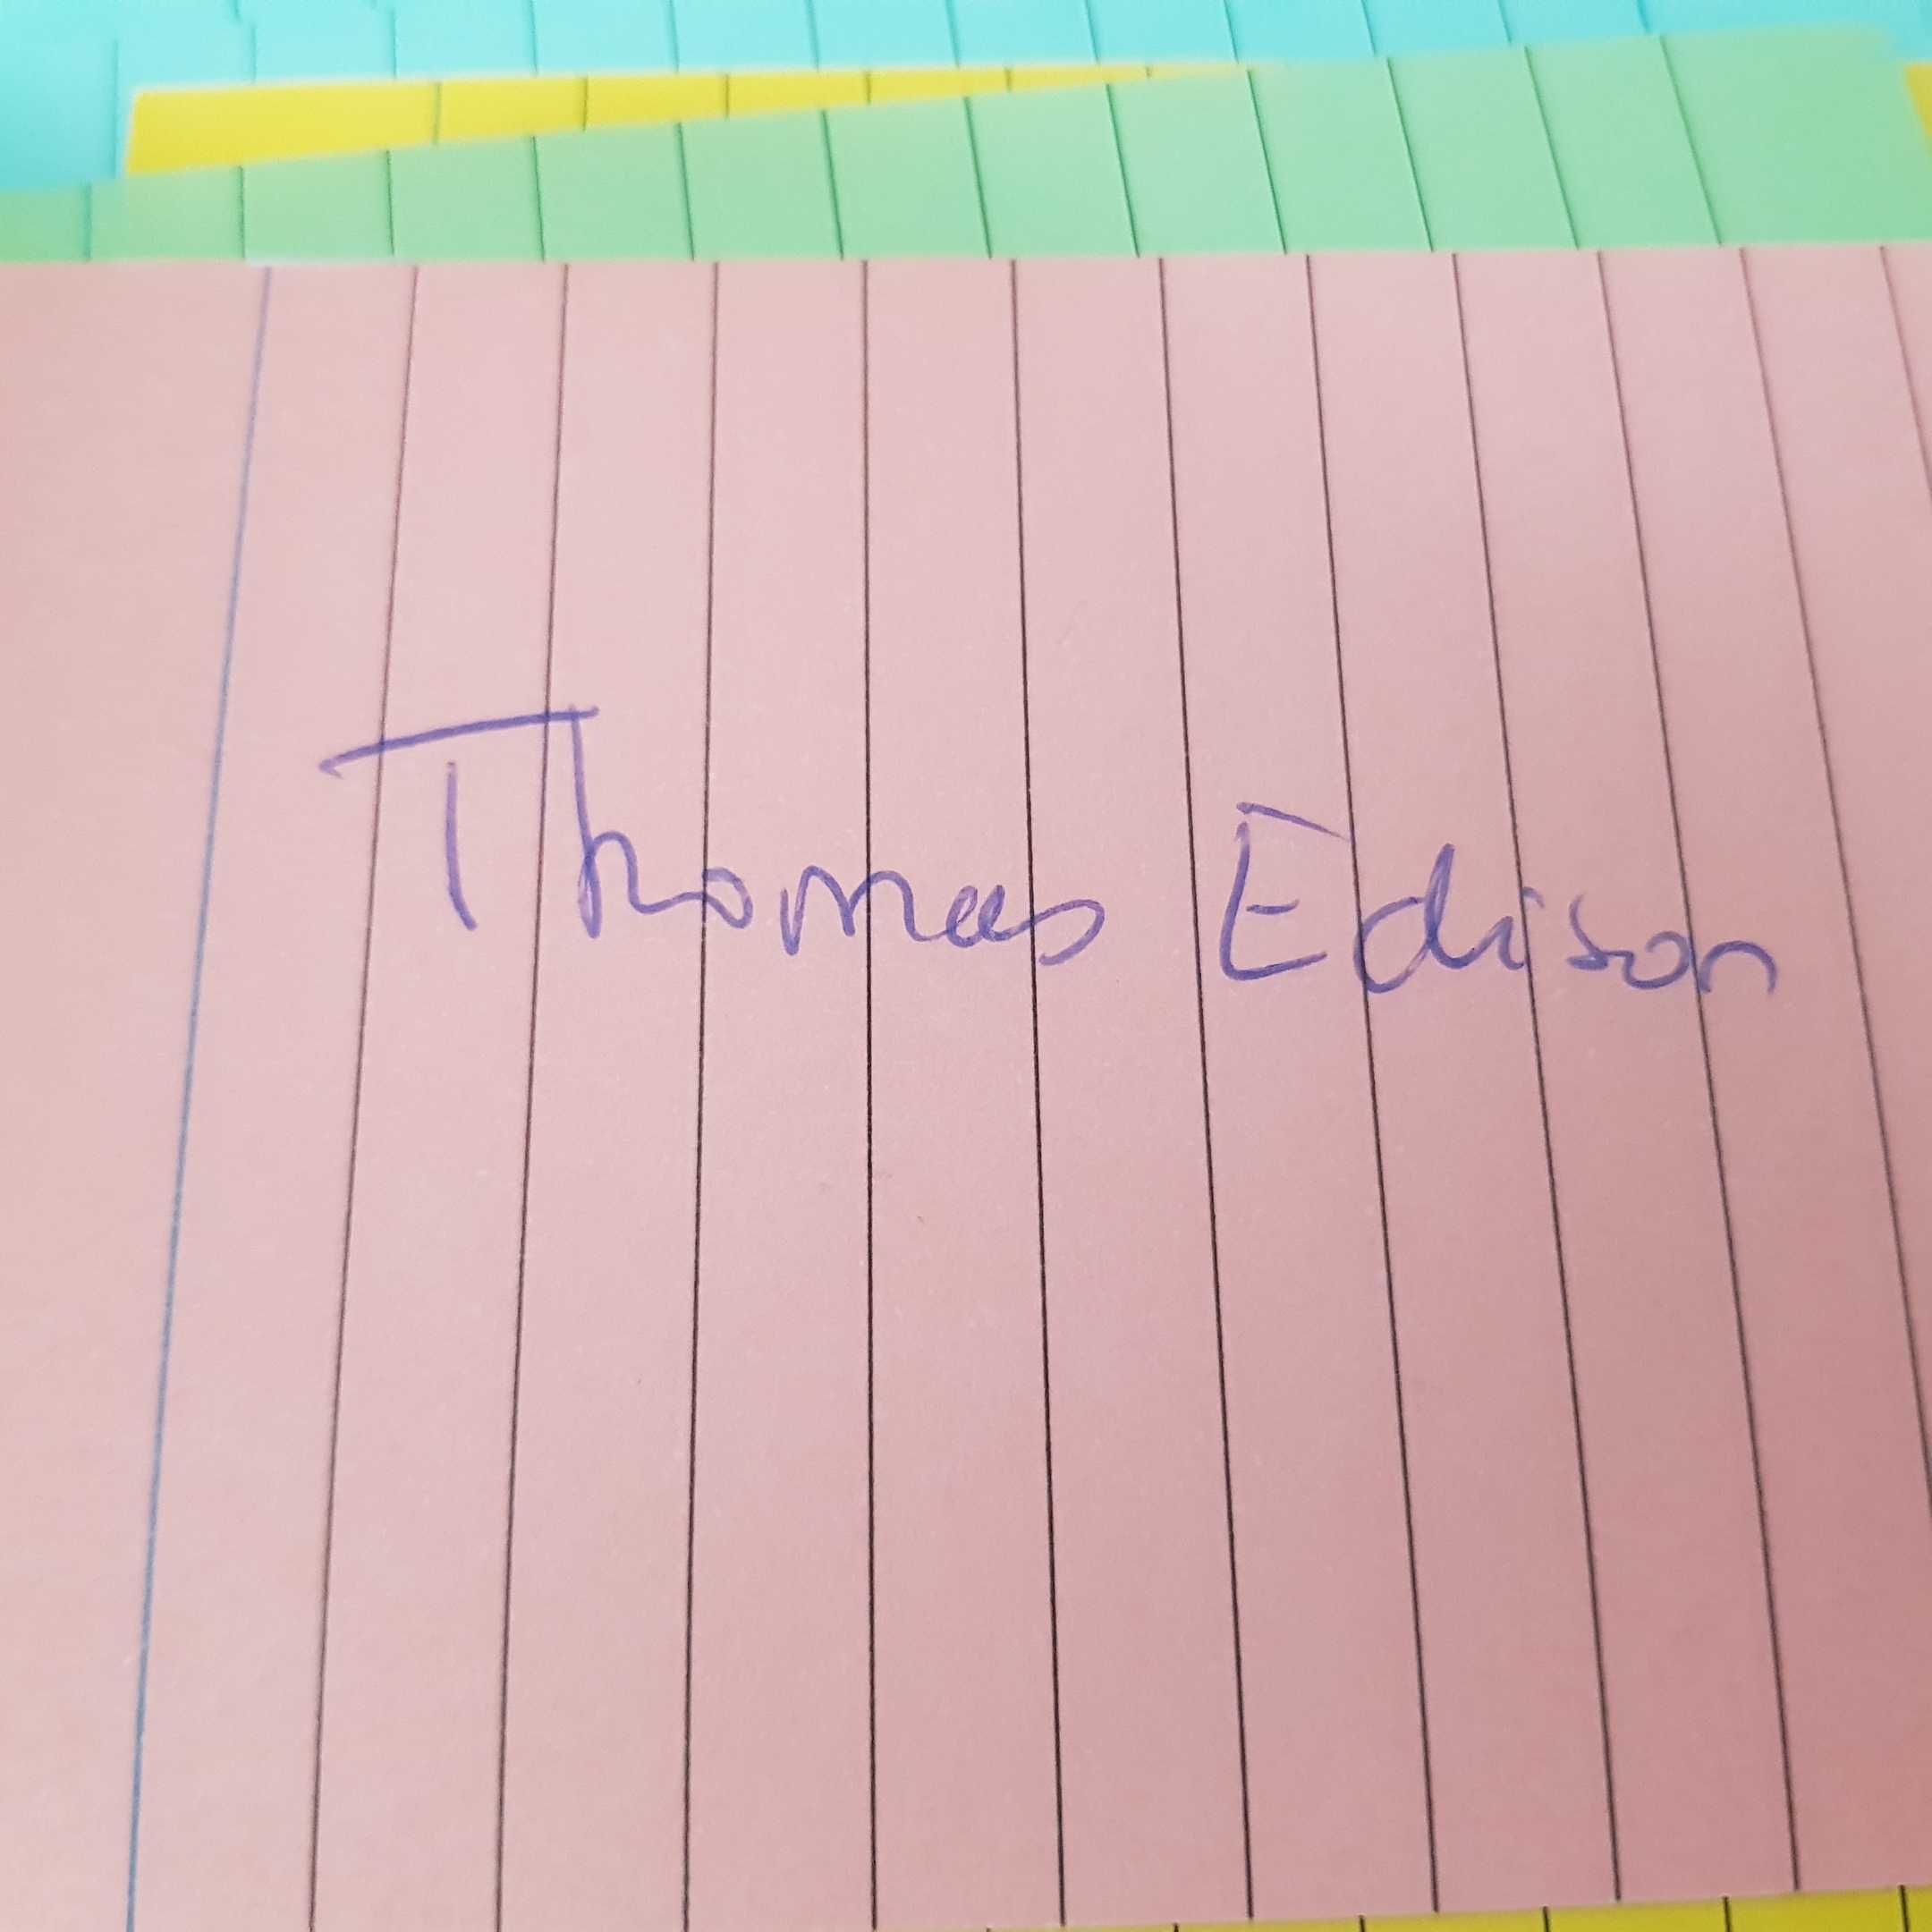 Thomas Edison